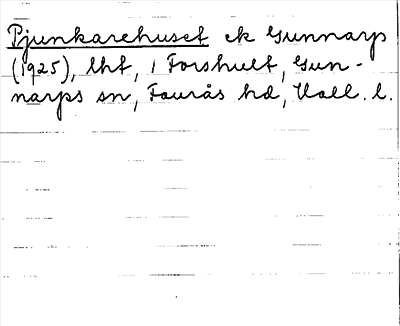 Pjunkarehuset ek Gunnarp
(1925), lht, i Forshult, Gun-
narps sn, Faurås hd, Hall. l.